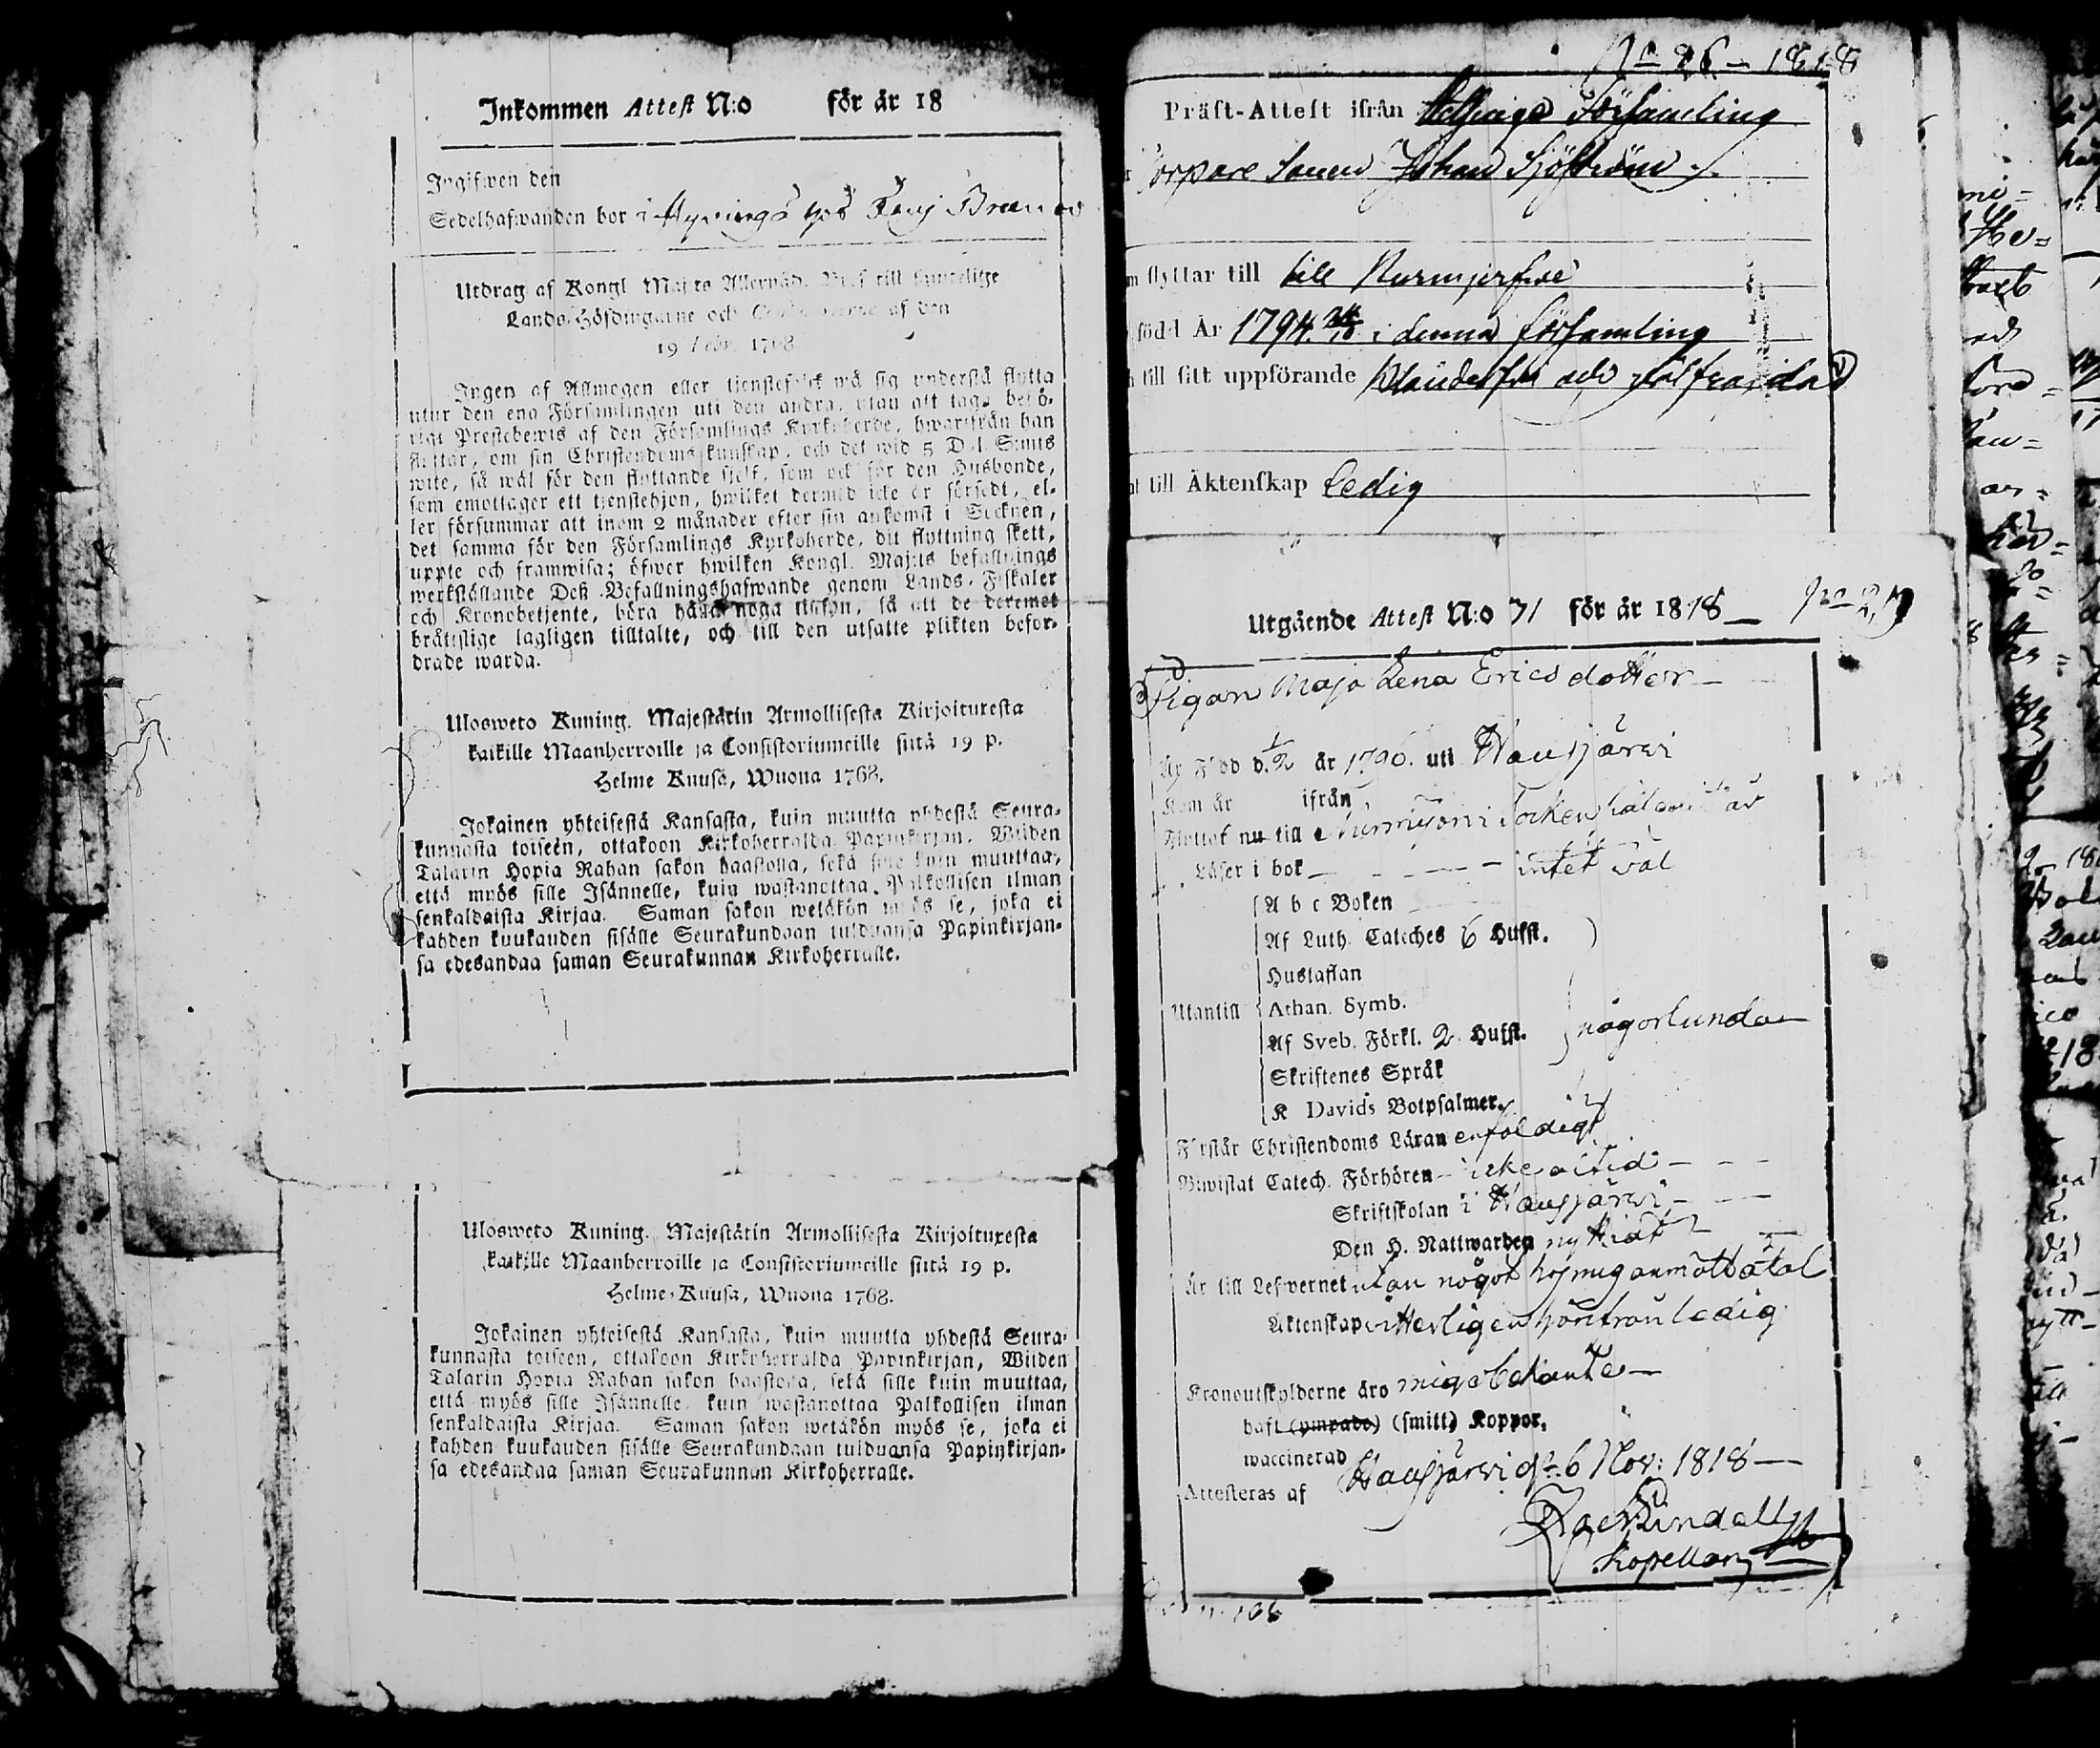 Inkommen Attest N:o för år 18
Ingifwen den
Sedelhafwanden bor i
Utdrag af Kongl Maj:ts Allernåd. Bref till samtelige
Lands-Höfdingarne och af den
19 Febr. 1768
Ingen af Allmogen eller tjenstefolck må sig understå flytta
utur den ena Församlingen uti den andra, utan att taga behö-
rigt Prestebewis af den Församlings Kyrkoherde, hwarifrån han
flyttar, om sin Christendoms kunskap, och det wid 5 Dal. S:mts
wite, så wäl för den flyttande sielf, som ock för den Husbonde,
som emottager ett tjenstehjon, hwilket dermed icke är försedt, el-
ler försummar att inom 2 månader efter sin ankomst i Socknen,
det samma för den Församlings Kyrkoherde, dit flyttning skett,
uppte och framwisa; öfwer hwilken Kongl. Maj:ts befallnings
werkställande Deß Befallningshafwande genom Lands-Fiskaler
och Kronobetjente, böra hålla noga tilsyn, så att de deremot
bråtislige lagligen tilltalte, och till den utsatte plikten befor-
drade warda.
Ulosweto Kuning. Majestätin Armollisesta Kirjoituxesta
kaikille Maanherroille ja Consistoriumeille siitä 19 p.
Helme Kuusa, Wuona 1768.
Jokainen yhteisestä Kansasta, kuin muutta yhdestä Seura-
kunnasta toiseen, ottakoon Kirkoherralda Papinkirjan, Wiiden
Talarin Hopia Rahan sakon haastolla, sekä sille kuin muuttaa,
että myös sille Isännelle, kuin wastanottaa Palkollisen ilman
senkaldaista Kirjaa. Saman sakon wetäkön myös se, joka ei
kahden kuukauden sisälle Seurakundaan tulduansa Papinkirjan-
sa edesandaa saman Seurakunnan Kirkoherralle.
Ulosweto Kuning. Majestätin Armollisesta Kirjoituxesta
kaikille Maanherroille ja Consistoriumeille siitä 19 p.
Helme-Kuusa, Wuona 1768.
Jokainen yhteisestä Kansasta, kuin muutta yhdestä Seura-
kunnasta toiseen, ottakoon Kirkoherralda Papinkirjan, Wiiden
Talarin Hopia Rahan sakon haastolla, sekä sille kuin muuttaa,
että myös sille Isännelle kuin wastanottaa Palkollisen ilman
senkaldaista Kirjaa. Saman sakon wetäkön myös se, joka ei
kahden kuukauden sisälle Seurakundaan tulduansa Papinkirjan-
sa edesandaa saman Seurakunnan Kirkoherralle.
No 26 1818
Präst-Attest ifrån Helsinge Församling
Torpare Sonen Johan Sjöström
flyttar till till Nurmijerfwi
född År 1794 24/8 i denna församling
till sitt uppförande Klanderfri och
till Äktenskap Ledig
Utgående Attest N:o 71 för år 1818
Pigan Maja Lena Ericsdotter
Är Född d. 1/2 år 1796. uti Hausjärwi
Kom år ifrån
Flyttat nu till Nurmijärwi Socken
Läser i bok intet wäl
Utantill
A b c Boken
Af Luth. Cateches 6 Hufst.
Hustaflan
Athan. Symb.
Af Sveb. Förkl. 2 Hufst. någorlunda
Skriftenes Språk
K Davids Botpsalmer.
Förstår Christendoms Läran enfoldigt
Biwistat Catech. Förhören icke altid
Skriftskolan i Hausjärwi
Den H. Nattwarden nyttiat
Är till Lefwernet utan något hos mig anmält åtal
Äktenskap witterligen hinderfrån ledig
Kronoutskylderne äro mig obekante
haft (ympade) (smitt) Koppor,
waccinerad
Attesteras af Hausjärwi d. 6 Nov: 1818
Lindell
Kapellan